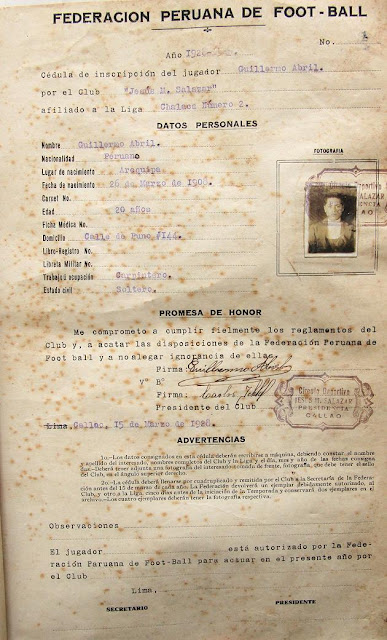 FEDERACION PERUANA DE FOOT-BALL
No.
Año 192
Cédula de inscripción del jugador Guillermo Abril.
por el Club "Jesús M. Salazar"
afiliado a la Liga Chalaca Número 2.
DATOS PERSONALES
Nombre Guillermo Abril.
Nacionalidad Peruano
Lugar de nacimiento Arequipa
Fecha de nacimiento 25 de Marzo de
Carnet No.
Edad 20 años
Ficha Médica No.
Domicilio Calle de Puno #144.
Libro-Registro No.
Libreta Militar No.
Trabajo u ocupación Carpintero.
Estado civil Soltero.
FOTOGRAFIA
Deportivo
SALAZAR
ENCIA
AO
PROMESA DE HONOR
Me comprometo a cumplir fielmente los reglamentos del
Club y, a acatar las disposiciones de la Federación Peruana de
Foot ball y a no alegar ignorancia de ellas.
Firma: Guillermo Abril
Vº Bº
Firma: Carlos
Presidente del Club
Circulo Deportivo
JESUS M. SALAZAR
PRESIDENCIA
CALLAO
Lima, Callao, 15 de Marzo de 1926.
ADVERTENCIAS
1a.-Los datos consignados en esta cédula deberán escribirse a máquina, debiendo constar, el nombre
y apellido del interesado, nombres completos del Club y la Liga y el día, mes y año de las fechas consigna
das.-Deberá tener adjunta una fotografía del interesado, tomada de frente, fotografía, que debe tener el sello
del Club, en el ángulo superior derecho.
2a.-La cédula deberá llenarse por cuadruplicado y remitirla por el Club a la Secretaría de la Federa-
ción antes del 15 de marzo de cada año. La Federación devolverá un ejemplar debidamente autorizado, al
Club, y otro a la Liga, cinco días antes de la iniciación de la Temporada y conservará dos ejemplares en el
archivo.-Los cuatro ejemplares deberán tener la fotografía respectiva.
Observaciones
El jugador está autorizado por la Fede-
ración Peruana de Foot-Ball para actuar en el presente año por
el Club
Lima,
SECRETARIO PRESIDENTE